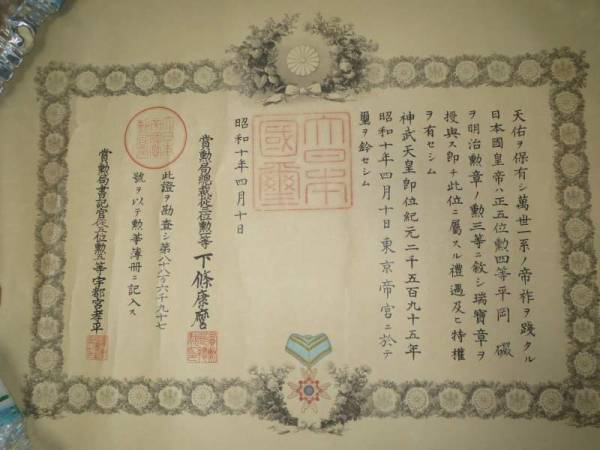 天佑ヲ保有シ萬世一系ノ帝祚ヲ踐タル
日本國皇帝ハ正五位勲四等平岡
ヲ明治勲章ノ勲三等ニ敍シ瑞寶章ヲ
授與ス即チ此位ニ屬スル禮遇及ヒ特權
ヲ有セシム
神武天皇即位紀元二千五百九十五年
昭和十年四月十日東京帝宮ニ於テ
璽ヲ鈐セシム
大日本
國璽
昭和十年四月十日
賞勲局總裁從三位勲二等下條康麿
此證ヲ勘査シ第八十八万六千九十七
號ヲ以テ勲等簿冊ニ記入ス
賞勲局書記官從五位勲五等宇都宮孝平